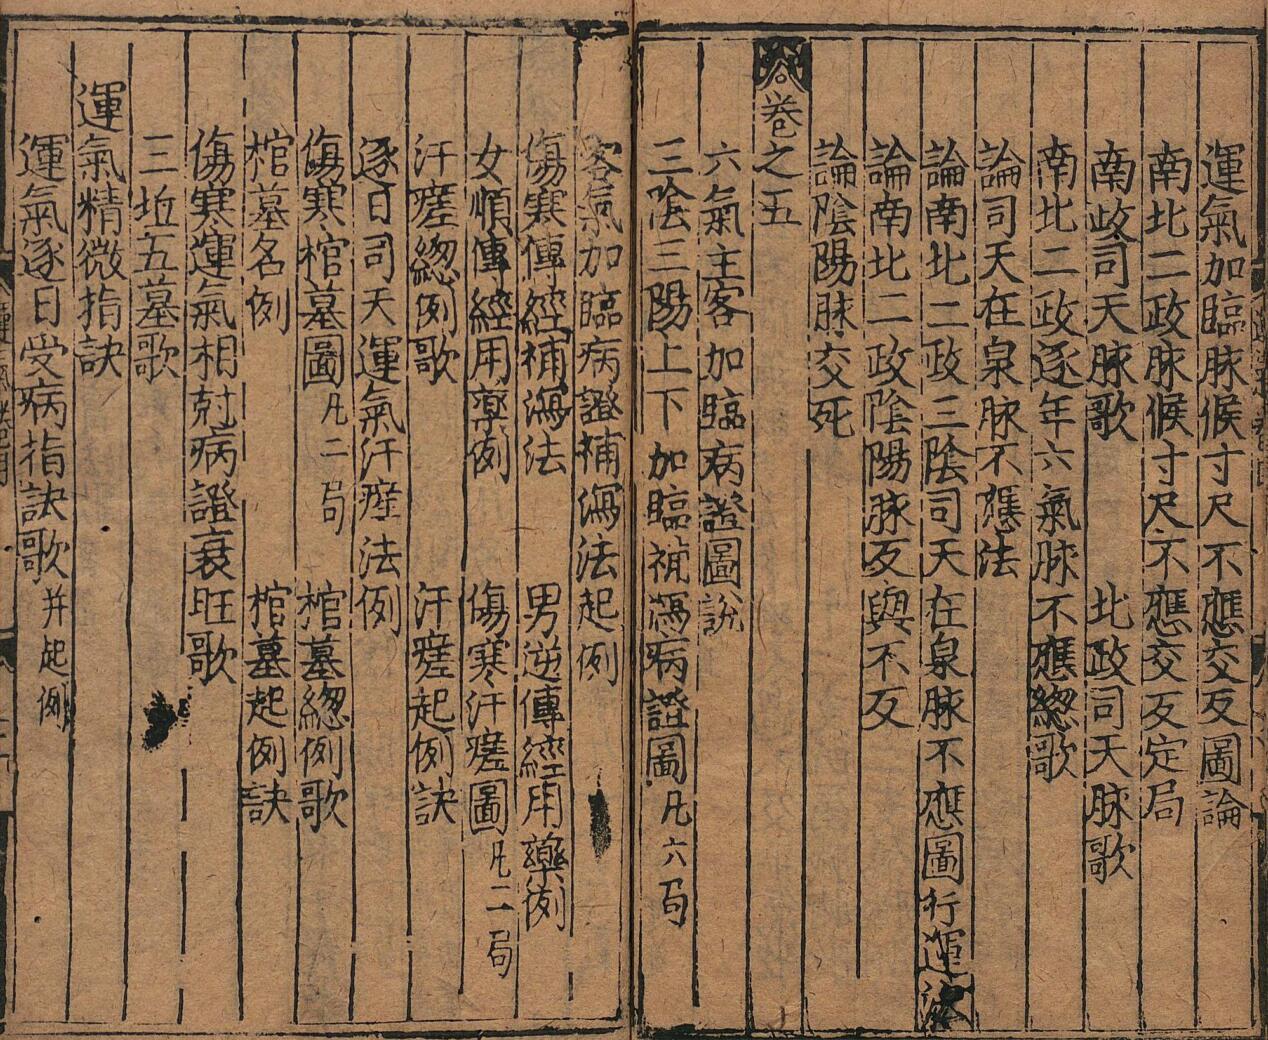 運氣加臨脉候寸尺不應交反圖論
南北二政脉候寸尺不應交反定局
南政司天脉歌 北政司天脉歌
南北二政逐年六氣脉不應緫歌
論司天在泉脉不應法
論南北二政三陰司天在泉脉不應圖行運法
論南北二政陰陽脉反與不反
論陰陽脉交死
卷之五
六氣主客加臨病證圖說
三陰三陽上下加臨補瀉病證圖凡六局
客氣加臨病證補瀉法起例
傷寒傳經補瀉法 男逆傳經用藥例
女順傳經用藥例 傷寒汗瘥圖凡二局
汗瘥緫例歌 汗瘥起例訣
逐日司天運氣汗瘥法例
傷寒棺墓圖凡二局 棺墓緫例歌
棺墓名例 棺墓起例訣
傷寒運氣相尅病證衰旺歌
三坵五墓歌
運氣精微指訣
運氣逐日受病指訣歌并起例